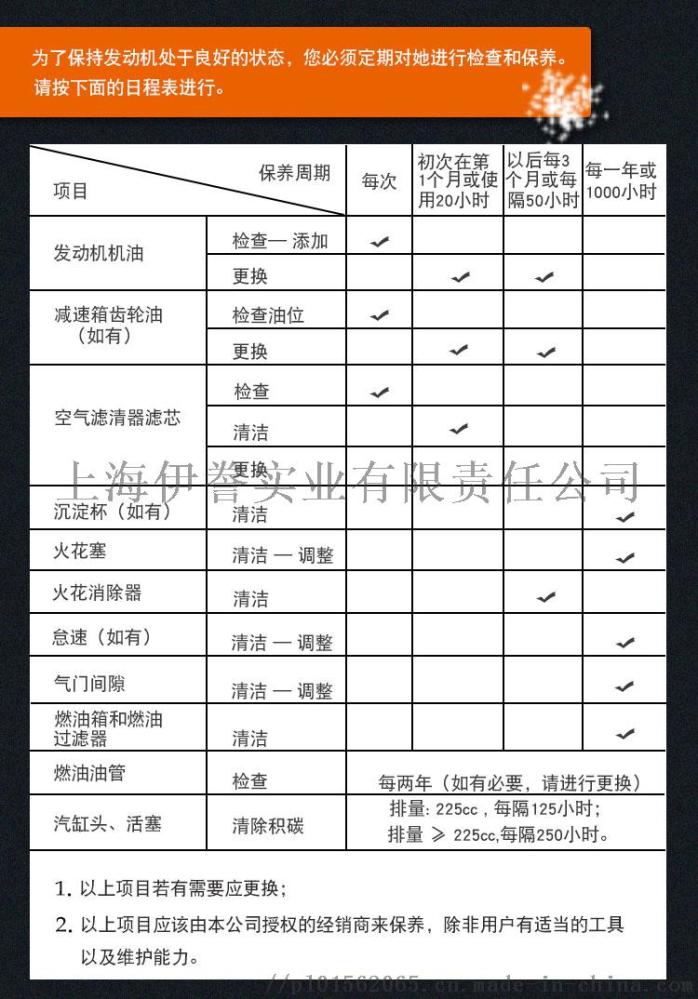 为了保持发动机处于良好的状态，您必须定期对她进行检查和保养。
请按下面的日程表进行。
保养周期
项目
每次
初次在第
1个月或使
用20小时
以后每3
个月或每
隔50小时
每一年或
1000小时
发动机机油
检查— 添加
更换
减速箱齿轮油
（如有）
检查油位
更换
空气滤清器滤芯
检查
清洁
更换
上海伊誉实业有限责任公司
沉淀杯（如有）
清洁
火花塞
清洁 — 调整
火花消除器
清洁
怠速（如有）
清洁 — 调整
气门间隙
清洁 — 调整
燃油箱和燃油
过滤器
清洁
燃油油管
检查
每两年（如有必要，请进行更换）
汽缸头、活塞
清除积碳
排量: 225cc , 每隔125小时；
排量 ≥ 225cc,每隔250小时。
1. 以上项目若有需要应更换；
2. 以上项目应该由本公司授权的经销商来保养，除非用户有适当的工具
以及维护能力。
//pl01562065.cn.made-in-china.com